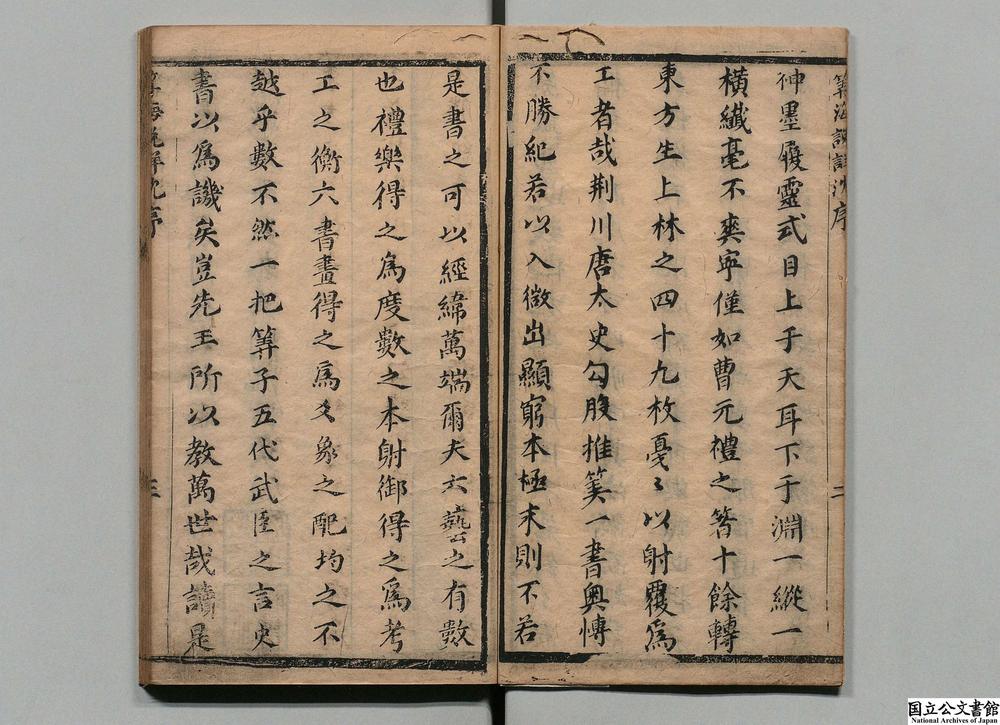 算海說詳沈序 二
神墨履靈式目上于天耳下于淵一縱一
橫纖毫不爽寧僅如曹元禮之箸十餘轉
東方生上林之四十九枚憂〻以射覆爲
工者哉荆川唐太史勾股推筭一書奥愽
不勝紀若以入微出顯窮本極末則不若
是書之可以經緯萬端爾夫六藝之有數
也禮樂得之爲度數之本射御得之爲考
工之衡六書畫得之爲爻象之配均之不
越乎數不然一把筭子五代武臣之言史
書以爲譏矣豈先王所以教萬世哉讀是
算海說詳沈序 三
国立公文書館
National Archives of Japan